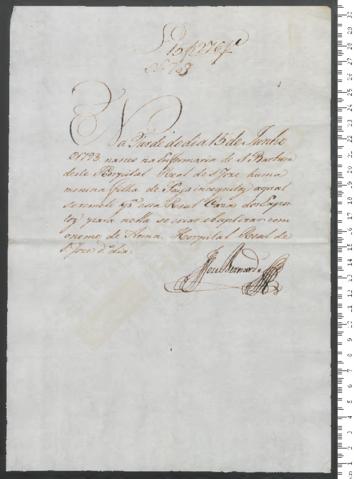 Na Tarde do dia 15 de Junho
1793 nasceo na Infermaria de S. Barbara
deste Hospital Real de S. Joze huma
menina filha de Pays incognitos, a qual
se remete pª essa Real Caza dos Expos
tos, para nella se criar e baptizar com
o nome de Anna. Hospital Real de
S. Joze dº dia.
Joze Bernardo